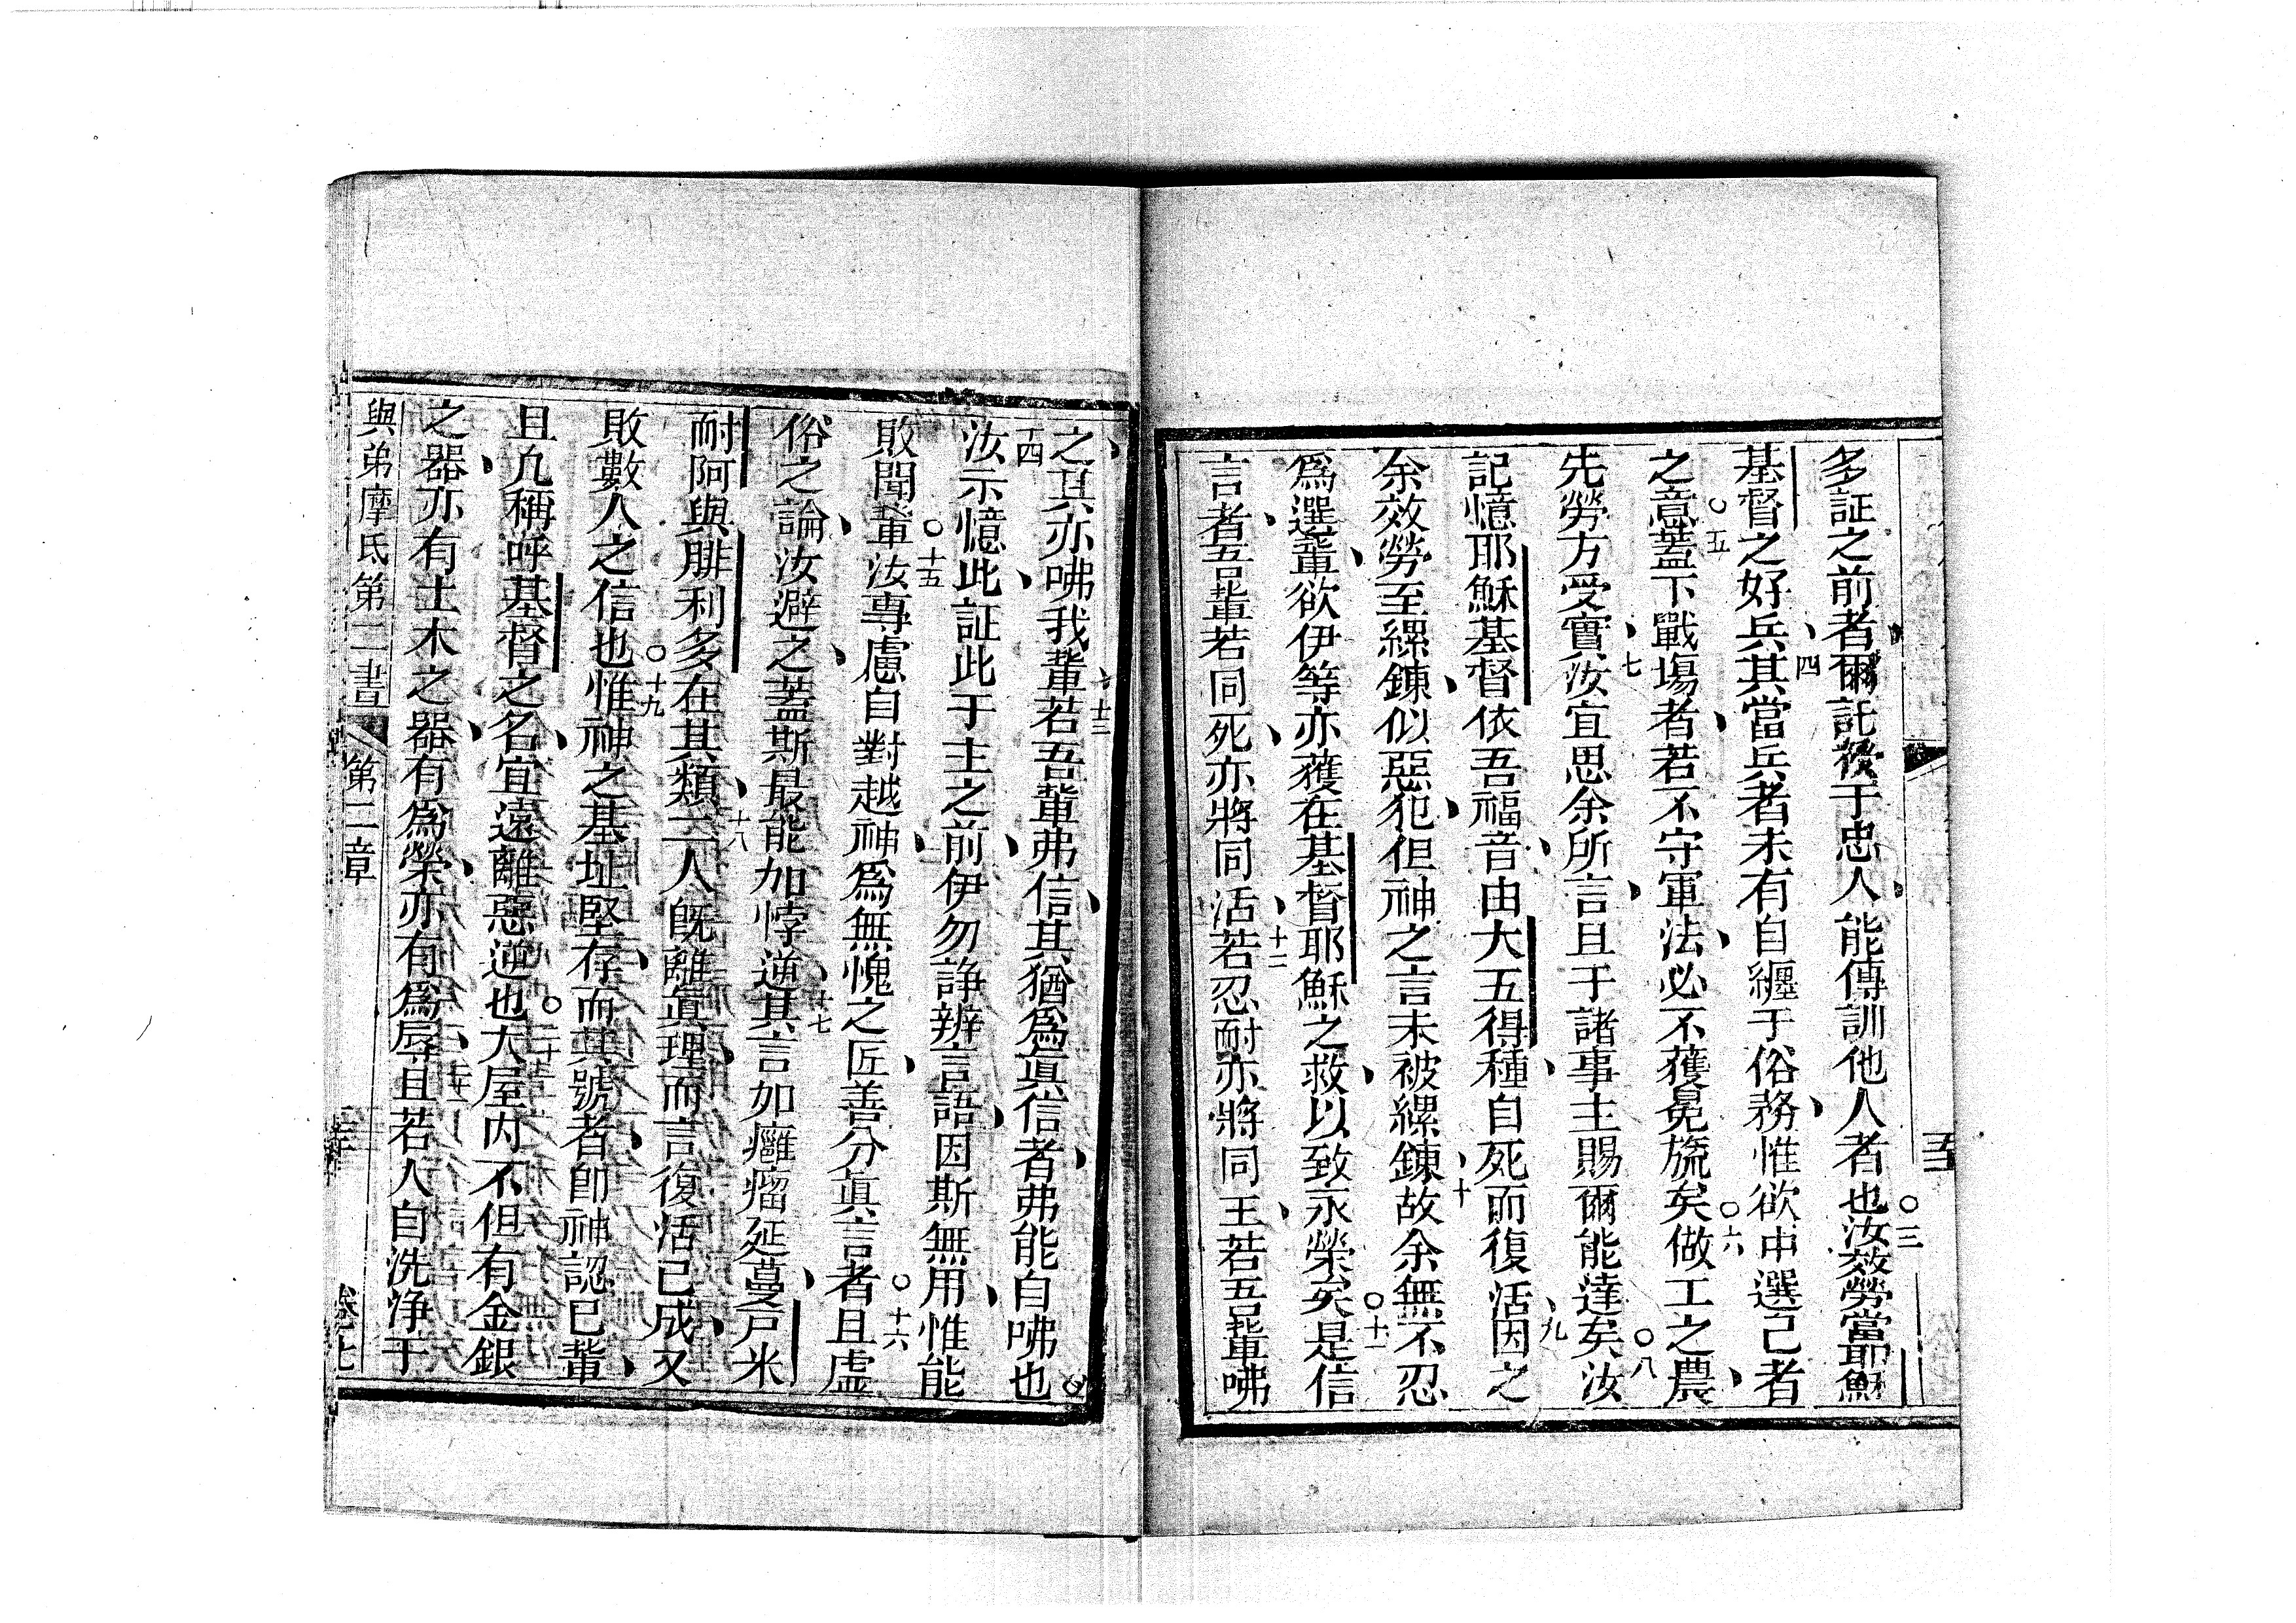 多証之前者爾託發于忠人能傳訓他人者也○三汝效勞當耶穌
基督之好兵四其當兵者未有自纏于俗務惟欲中選己者
之意○五蓋下戰場者若不守軍法必不獲冕旒矣○六做工之農
先勞方受實七汝宜思余所言且于諸事主賜爾能達矣○八汝
記憶耶穌基督依吾福音由大五得種自死而復活九因之
余效勞至縲鍊似惡犯但神之言未被縲鍊十故余無不忍
爲選輩欲伊等亦獲在基督耶穌之救以致永榮矣○十一是信
言者吾輩若同死亦將同活十二若忍耐亦將同王若吾輩咈
之其亦咈我輩十三若吾輩弗信其猶爲眞信者弗能自咈也○
十四汝示憶此証此于主之前伊勿諍辨言語因斯無用惟能
敗聞輩○十五汝專慮自對越神爲無愧之匠善分眞言者○十六且虛
俗之論汝避之蓋斯最能加悖逆十七其言如癰瘤延蔓戶米
耐阿與腓利多在其類十八二人旣離眞理而言復活已成又
敗數人之信也○十九惟神之基址堅存而其號者卽神認己輩
且凡稱呼基督之名宜遠離惡逆也○二十大屋內不但有金銀
之器亦有土木之器有爲榮亦有爲辱二十一且若人自洗浄于
與弟摩氐第二書 第二章 卷七
五